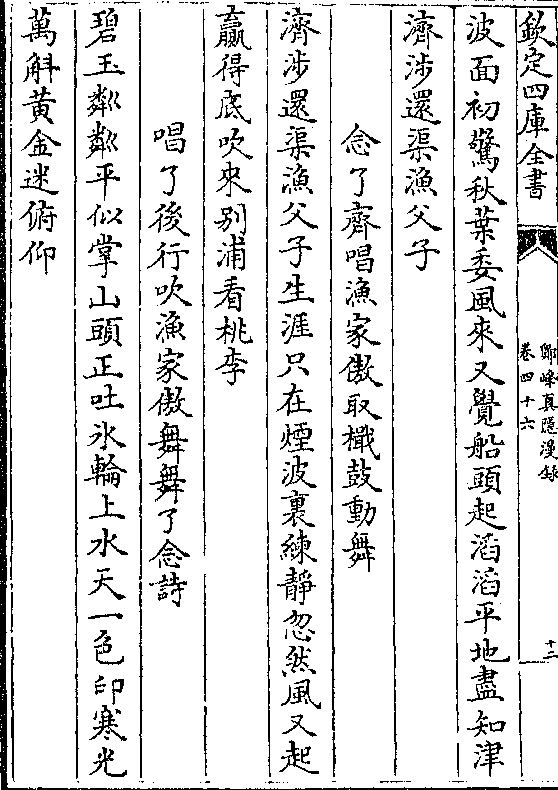 欽定四庫全書
鄮峰真隱漫録
卷四十六
十二
波面初驚秋葉委風來又覺船頭起滔滔平地盡知津
濟涉還渠漁父子
念了齊唱漁家傲取檝鼓動舞
濟涉還渠漁父子生涯只在煙波裏練靜忽然風又起
贏得底吹來别浦看桃李
唱了後行吹漁家傲舞舞了念詩
碧玉粼粼平似掌山頭正吐氷輪上水天一色印寒光
萬斛黄金迷俯仰